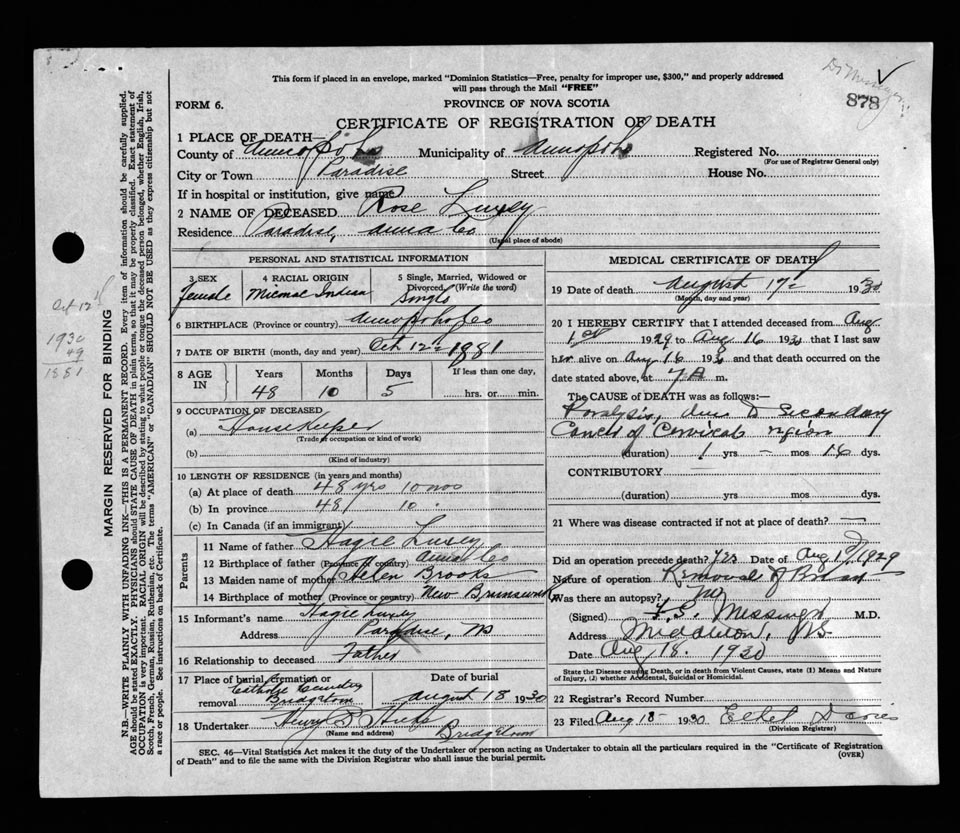 This form if placed in an envelope, marked "Dominion Statistics—Free, penalty for improper use, $300," and properly addressed
will pass through the Mail "FREE"
878
FORM 6.
PROVINCE OF NOVA SCOTIA
CERTIFICATE OF REGISTRATION OF DEATH
1 PLACE OF DEATH—
County of Annapolis Municipality of Annapolis Registered No.
(For use of Registrar General only)
City or Town Paradise Street House No.
If in hospital or institution, give name
2 NAME OF DECEASED Rose Luxey
Residence Paradise, Anna Co
(Usual place of abode)
PERSONAL AND STATISTICAL INFORMATION
3 SEX 4 RACIAL ORIGIN 5 Single, Married, Widowed or
Divorced, (Write the word)
Female Micmac Indian Single
6 BIRTHPLACE (Province or country) Annapolis Co
7 DATE OF BIRTH (month, day and year) Oct 12th 1881
8 AGE IN Years Months Days If less than one day,
48 10 5 hrs. or min.
9 OCCUPATION OF DECEASED
(a) Housekeeper
(Trade or occupation or kind of work)
(b)
(Kind of industry)
10 LENGTH OF RESIDENCE (in years and months)
(a) At place of death 48 yrs 10 mos
(b) In province 48 10
(c) In Canada (if an immigrant)
Parents
11 Name of father Luxey
12 Birthplace of father (Province or country) Anna Co
13 Maiden name of mother Helen Brooks
14 Birthplace of mother (Province or country) New Brunswick
15 Informant's name Luxey
Address Paradise, NS
16 Relationship to deceased Father
17 Place of burial, cremation or Date of burial
removal Catholic Cemetery
Bridgetown August 18 1930
18 Undertaker Henry Hicks
(Name and address) Bridgetown
MEDICAL CERTIFICATE OF DEATH
19 Date of death August 17th 1930
(Month, day and year)
20 I HEREBY CERTIFY that I attended deceased from Aug
1st 1929 to Aug 16 1930 that I last saw
her alive on Aug 16 1930 and that death occurred on the
date stated above, at 7 A m.
The CAUSE of DEATH was as follows:—
Paralysis, due to Secondary
Cancer of Cervical region
(duration) 1 yrs – mos 16 dys.
CONTRIBUTORY
(duration) yrs. mos. dys.
21 Where was disease contracted if not at place of death?
Did an operation precede death? Yes Date of Aug 1929
Nature of operation Removal of Breast
Was there an autopsy? No
(Signed) Messinger M.D.
Address Middleton, NS
Date Aug 18. 1930
State the Disease causing Death, or in death from Violent Causes, state (1) Means and Nature
of Injury, (2) whether Accidental, Suicidal or Homicidal.
22 Registrar's Record Number
23 Filed Aug 18 1930 Ethel Davies
(Division Registrar)
SEC. 46—Vital Statistics Act makes it the duty of the Undertaker or person acting as Undertaker to obtain all the particulars required in the "Certificate of Registration
of Death" and to file the same with the Division Registrar who shall issue the burial permit.
(OVER)
MARGIN RESERVED FOR BINDING
N.B.—WRITE PLAINLY WITH UNFADING INK—THIS IS A PERMANENT RECORD. Every item of information should be carefully supplied.
AGE should be stated EXACTLY. PHYSICIANS should STATE CAUSE OF DEATH in plain terms, so that it may be properly classified. Exact statement of
OCCUPATION is very important. RACIAL ORIGIN will be described by stating to what people or tongue the deceased person belonged, whether English, Irish,
Scotch, French, German, Russian, Ruthenian, etc. The terms "AMERICAN" or "CANADIAN" SHOULD NOT BE USED as they express citizenship but not
a race or people. See instructions on back of Certificate.
Oct 12
1930
49
1881